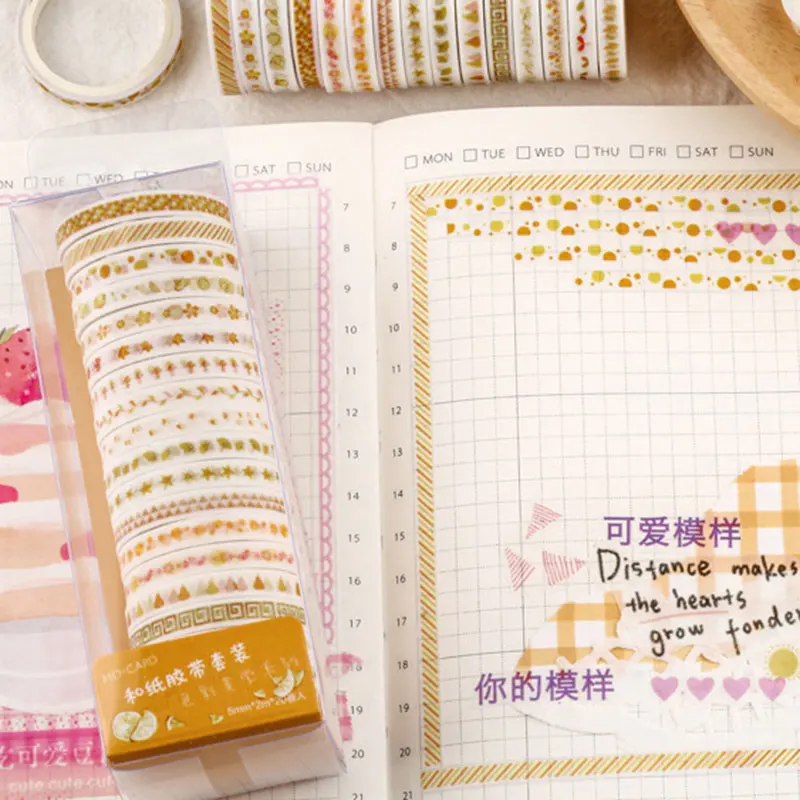 TUE
WED
SAT
SUN
MON
TUE
WED
THU
FRI
SAT
SUN
7
8
9
10
11
12
13
14
15
16
17
18
19
20
7
8
9
10
11
12
13
14
15
16
17
18
19
20
21
可爱模样
Distance makes
the hearts
grow fonder
你的模样
和纸胶带套装
可爱豆
cute cute cut